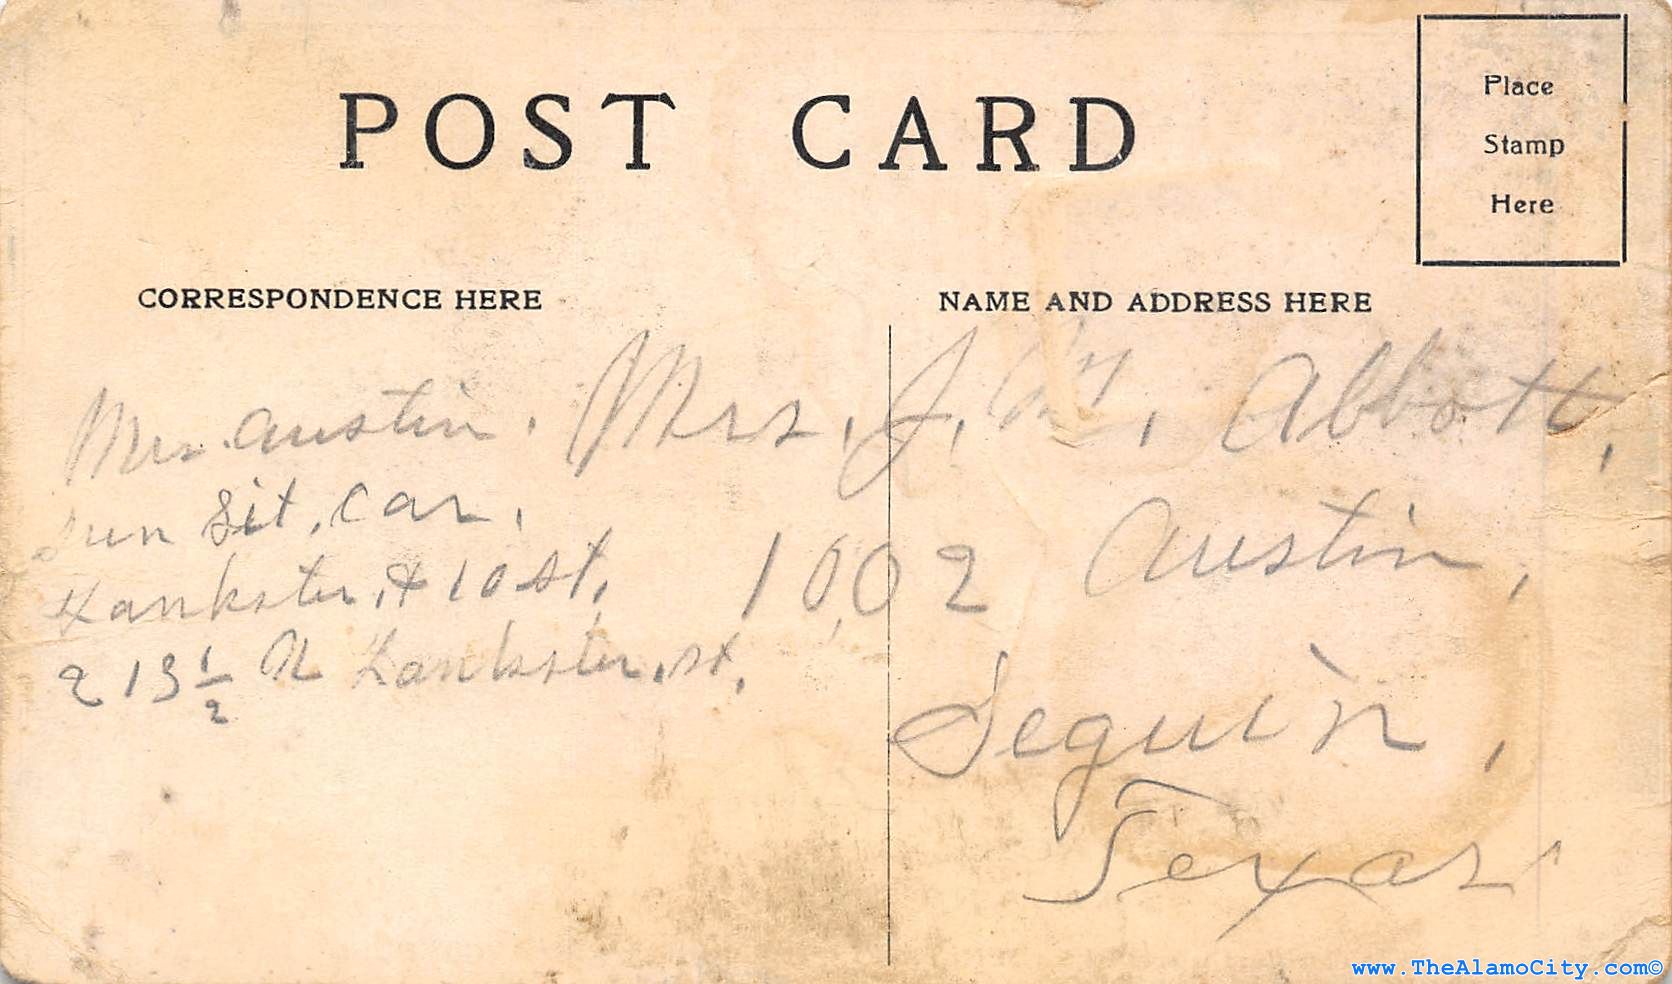 POST CARD
Place
Stamp
Here
CORRESPONDENCE HERE
NAME AND ADDRESS HERE
Mrs. Austin.
Sit, Car,
& 10 st,
213 1/2 N st,
Mrs, J, Abbott,
1002 Austin,
Seguin,
Texas
www.TheAlamoCity.com©